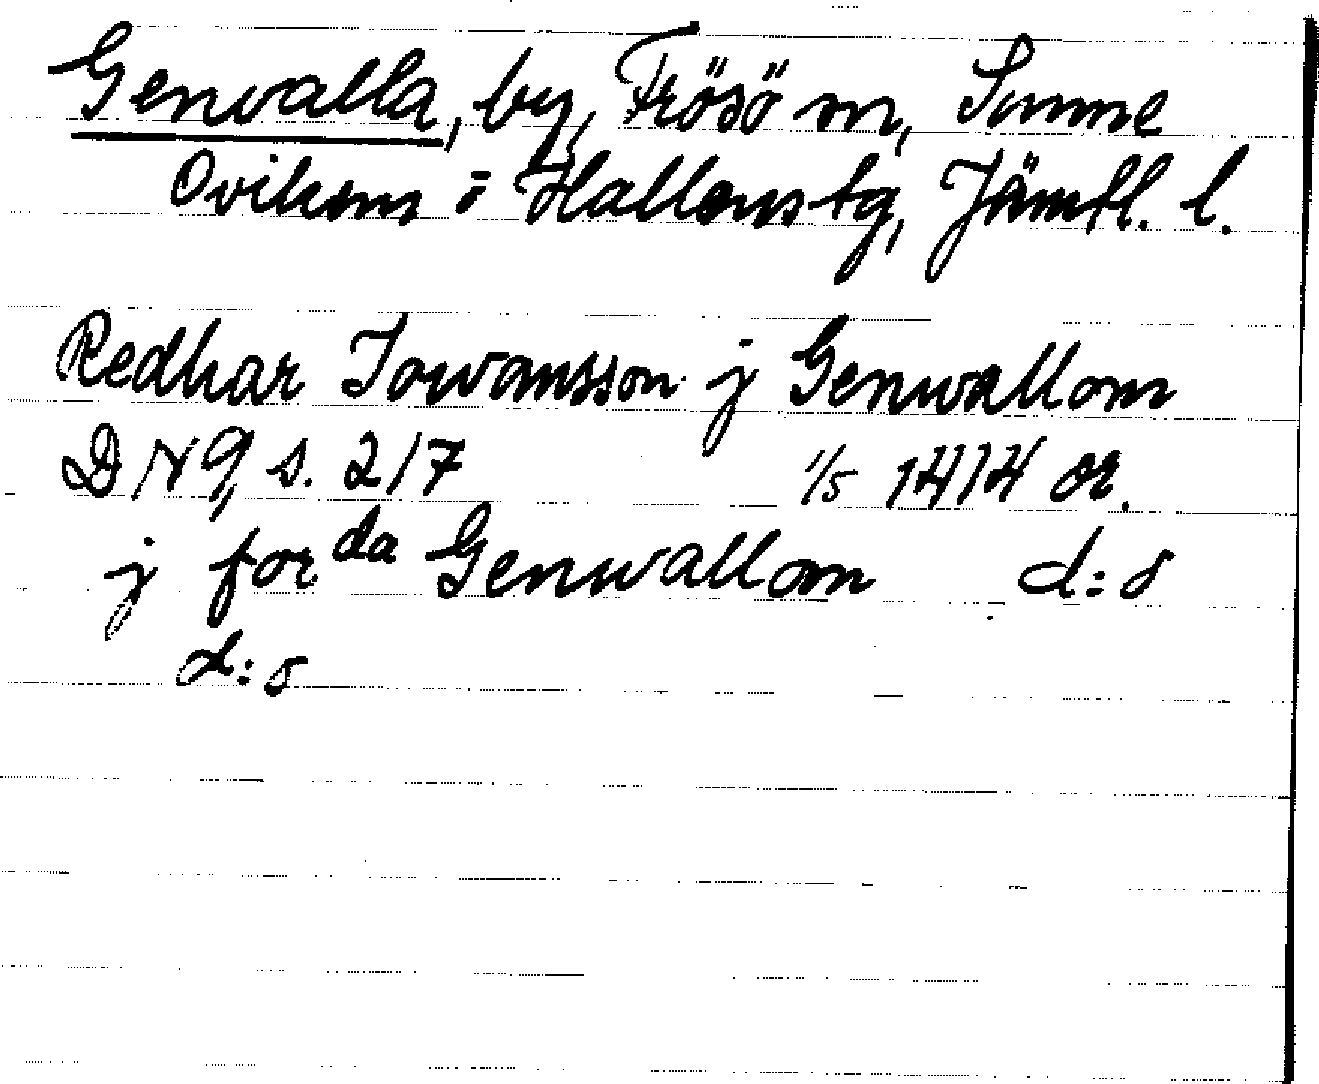 Genvalla, by, Frösö sn, Sunne
Ovikens o Hallens tg, Jämtl. l.
Redhar Jowansson j Genwallom
DN 9, s. 217 1/5 1414 or.
j for da Genwallom d:s
d:s